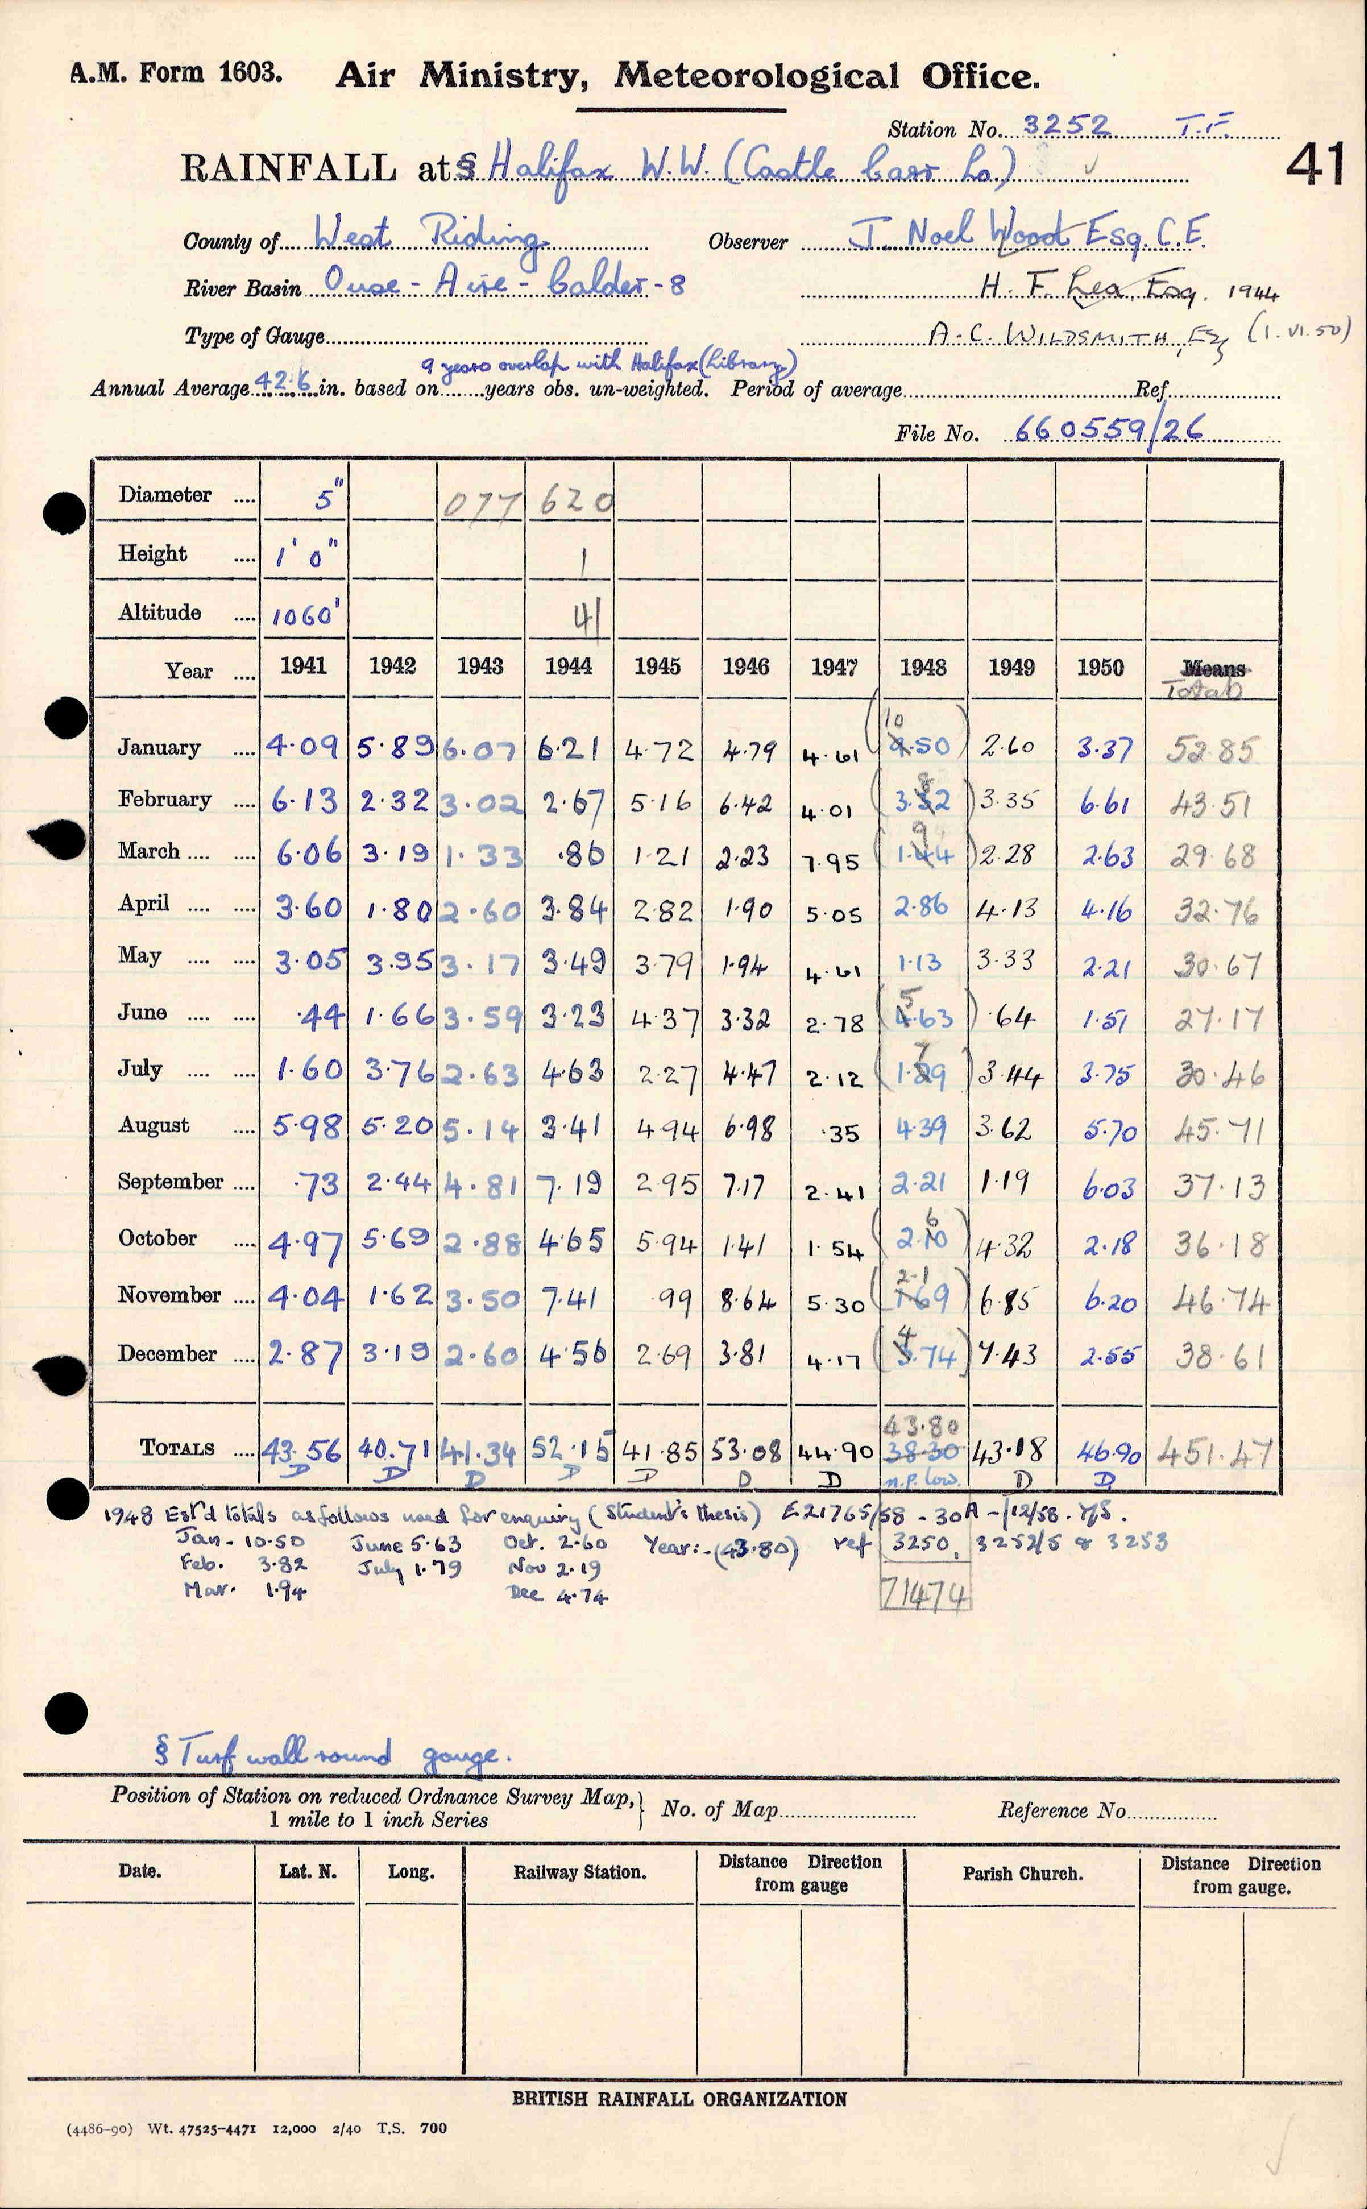 A.M. Form 1603. Air Ministry, Meteorological Office.
Station No. 3252 T.F.
RAINFALL at § Halifax W.W. (Castle Carr Lo.) 41
County of West Riding Observer J. Noel Wood Esq. C.E.
River Basin Ouse - Aire - Calder - 8 H. F. Lea, Esq. 1944
Type of Gauge A. C. WILDSMITH, Esq (1.VI.50)
9 years overlap with Halifax (Library)
Annual Average 42.6 in. based on years obs. un-weighted. Period of average Ref
File No. 660559/26
Diameter .... 5" 077 620
Height .... 1' 0" 1
Altitude .... 1060' 41
Year .... 1941 1942 1943 1944 1945 1946 1947 1948 1949 1950 Means
Total
January .... 4.09 5.89 6.07 6.21 4.72 4.79 4.61 (10 4.50) 2.60 3.37 52.85
February .... 6.13 2.32 3.02 2.67 5.16 6.42 4.01 (3.32 8) 3.35 6.61 43.51
March .... .... 6.06 3.19 1.33 .86 1.21 2.23 7.95 (1.44 9) 2.28 2.63 29.68
April .... .... 3.60 1.80 2.60 3.84 2.82 1.90 5.05 2.86 4.13 4.16 32.76
May .... .... 3.05 3.95 3.17 3.49 3.79 1.94 4.61 1.13 3.33 2.21 30.67
June .... .... .44 1.66 3.59 3.23 4.37 3.32 2.78 (5 4.63) .64 1.51 27.17
July .... .... 1.60 3.76 2.63 4.63 2.27 4.47 2.12 (1.29 7) 3.44 3.75 30.46
August .... 5.98 5.20 5.14 3.41 4.94 6.98 .35 4.39 3.62 5.70 45.71
September .... .73 2.44 4.81 7.19 2.95 7.17 2.41 2.21 1.19 6.03 37.13
October .... 4.97 5.69 2.88 4.65 5.94 1.41 1.54 (2.10 6) 4.32 2.18 36.18
November .... 4.04 1.62 3.50 7.41 .99 8.64 5.30 (2.1 1.69) 6.85 6.20 46.74
December .... 2.87 3.19 2.60 4.56 2.69 3.81 4.17 (4 3.74) 7.43 2.55 38.61
43.80
TOTALS .... 43.56 40.71 41.34 52.15 41.85 53.08 44.90 38.30 43.18 46.90 451.47
D D D D D D D n.p. low. D D
1948 Est'd totals as follows used for enquiry (Student's thesis) E21765/58 - 30A - 1/12/58.
Jan - 10.50 June 5.63 Oct. 2.60 Year:- (43.80) ref 3250, 3252/5 & 3253
Feb. 3.82 July 1.79 Nov 2.19
Mar. 1.94 Dec 4.74
71474
§ Turf wall round gauge.
Position of Station on reduced Ordnance Survey Map, } No. of Map Reference No
1 mile to 1 inch Series
Date. Lat. N. Long. Railway Station. Distance Direction from gauge Parish Church. Distance Direction from gauge.
BRITISH RAINFALL ORGANIZATION
(4486-90) Wt. 47525-4471 12,000 2/40 T.S. 700